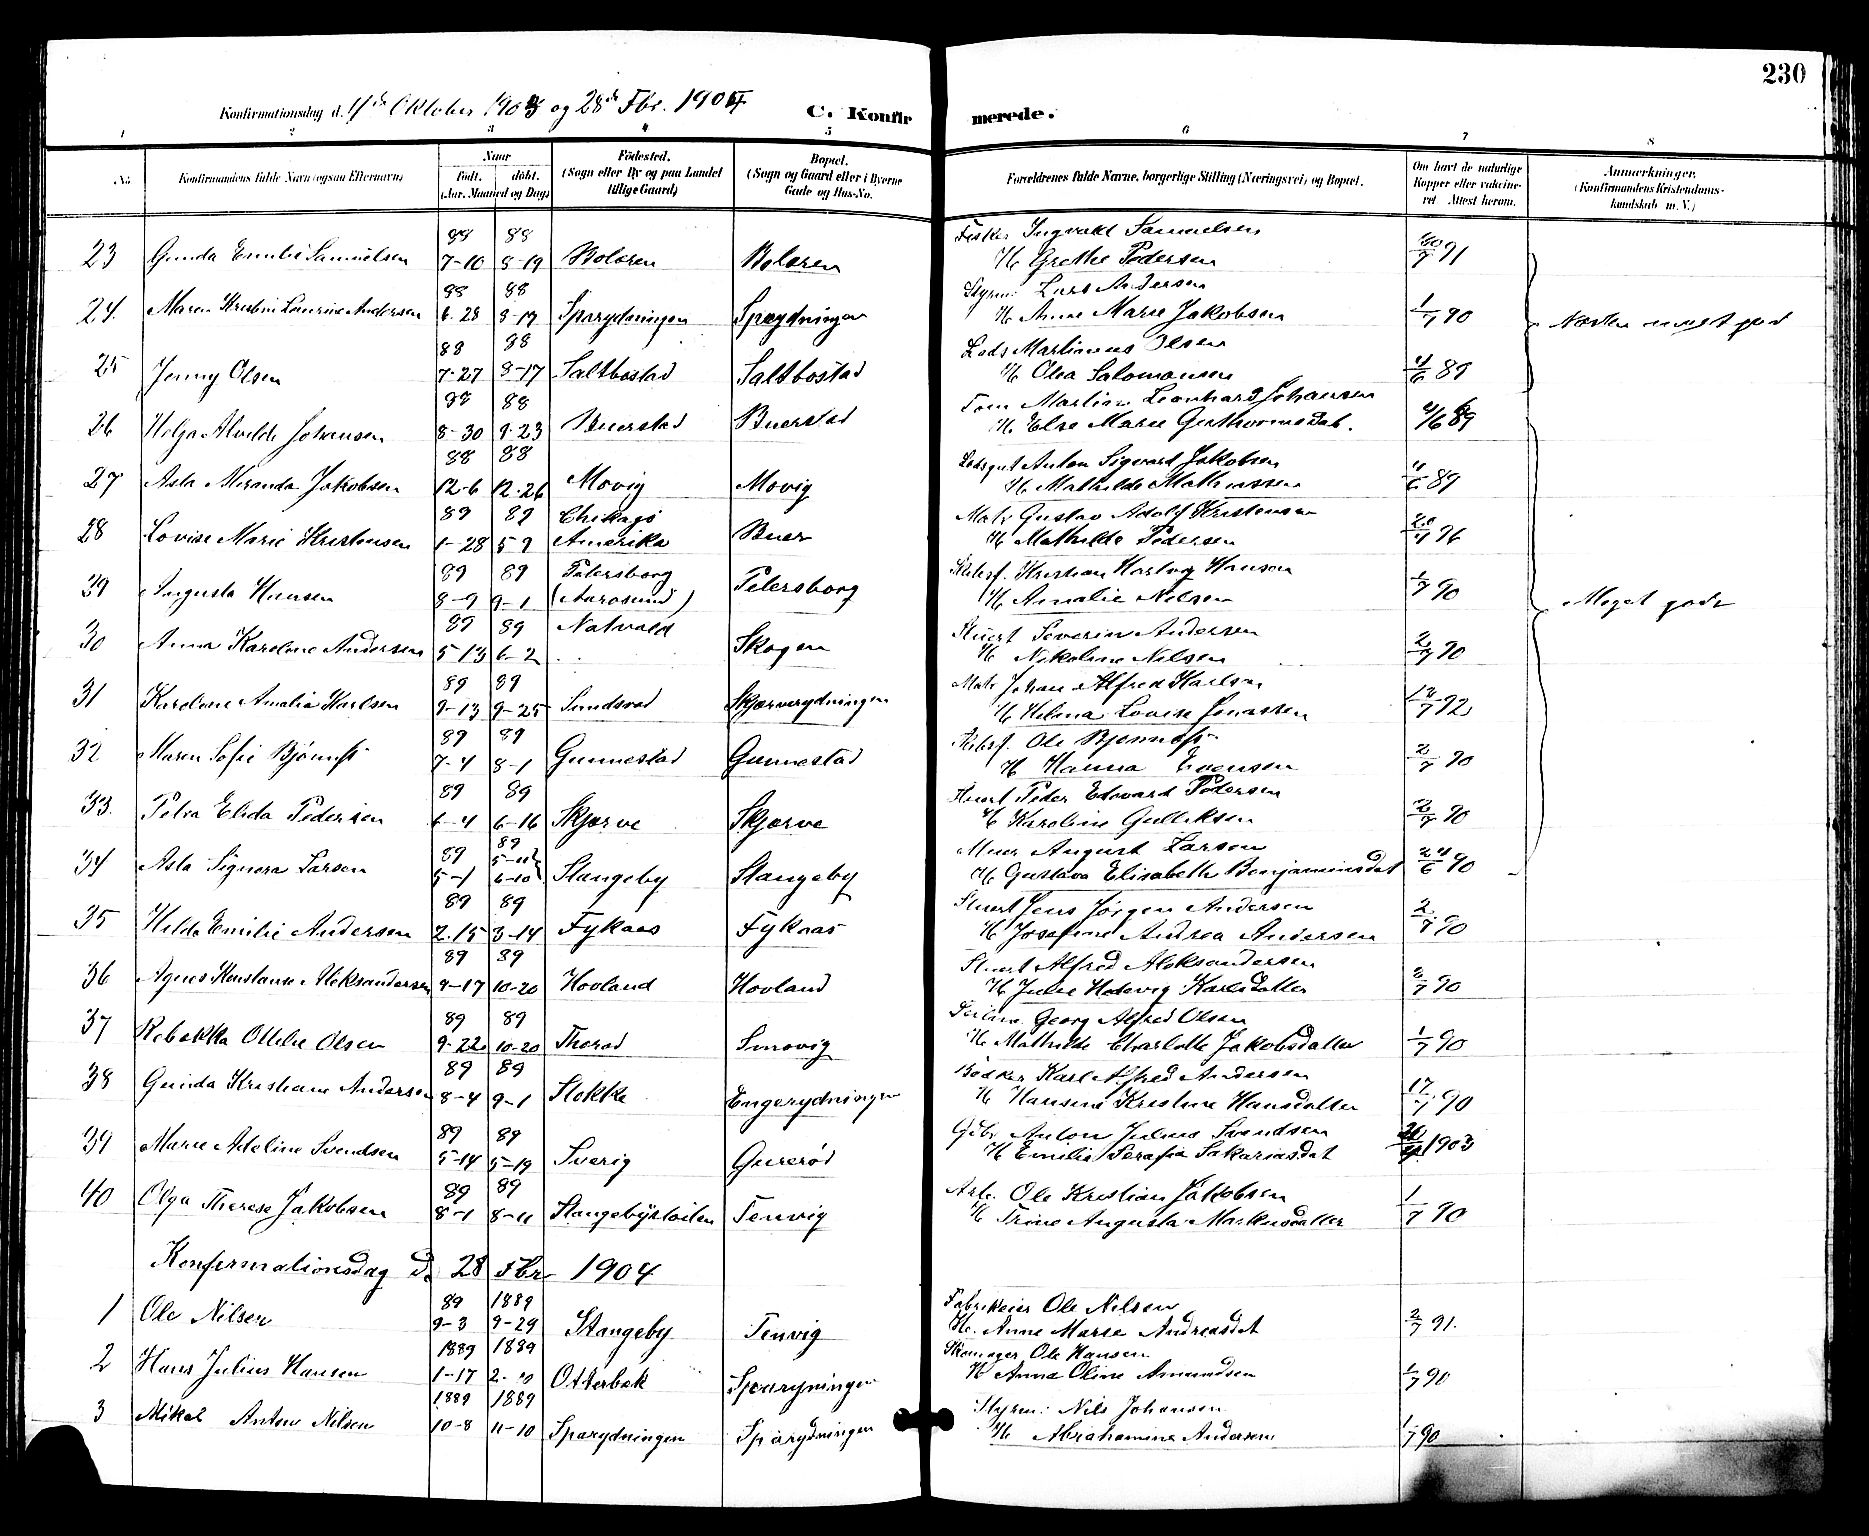 230
Konfirmationsdag d. 4de Oktober 1903 og 28de Fbr. 1904
C. Konfirmerede.
1 2 3 4 5 6 7 8
No
Konfirmandens fulde Navn (ogsaa Efternavn)
Naar
født. døbt.
(Aar, Maaned og Dag)
Födested.
(Sogn eller By og paa Landet
tillige Gaard)
Bopæl.
(Sogn og Gaard eller i Byerne
Gade og Hus-No.
Forældrenes fulde Navne, borgerlige Stilling (Næringsvei) og Bopæl.
Om havt de naturlige
Kopper eller vaccine-
ret. Attest herom.
Anmerkninger.
(Konfirmandens Kristendoms-
kundskab m. V.)
88 88 Fisker Ingvald Samuelsen
23 Gunda Emilie Samuelsen 7-10 8-19 Bolæren Bolæren H Grethe Pedersen 30/7 91
88 88 Styrm: Lars Andersen
24. Maren Kristine Laurine Andersen 6-28 8-19 Sparydningen Sparydningen H Anne Marie Jakobsen 1/7 90 Næsten meget god
88 88 Lods Martinius Olsen
25 Jenny Olsen 7-27 8-17 Saltbostad Saltbostad H Olea Salomonsen 4/6 89
88 88 Martin Leonhard Johansen
26 Helga Alvilde Johansen 8-30 9-23 Buerstad Buerstad H. Else Marie Guthormsdat. 4/6 89
88 88 Lodsgut Anton Sigvard Jakobsen
27 Asla Miranda Jakobsen 12-6 12-26 Movig Movig H Mathilde Mathissen 4/6 89
89 89 Chikago Matr Gustav Adolf Kristensen
28 Lovise Marie Kristensen 1-28 5-9 Amerika Buer H Mathilde Pedersen 20/7 96
89 89 Petersborg Kristian Hartvig Hansen
29 Augusta Hansen 8-9 9-1 (Aarosund) Petersborg H Amalie Nilsen 1/7 90 Meget god
89 89 Natvold Severin Andersen
30 Anna Karoline Andersen 5-13 6-2 Skogen H Nikoline Nilsen 2/7 90
89 89 Matr Johan Alfred Karlsen
31 Karoline Amalia Karlsen 9-13 9-25 Sundsrød Skjærverydningen H Helena Lovise Jonassen 12/7 92
89 89 Ole Bjønness
32 Maren Sofie Bjønness 7-4 8-1 Gunnestad Gunnestad H Hanna Evensen 2/7 90
89 89 Peder Edvard Pedersen
33. Petra Elida Pedersen 6-4 6-16 Skjærve Skjærve H Karoline Gulliksen 2/7 90
89 89 5-11 Murer August Larsen
34 Asla Signora Larsen 5-1 6-10 Stangeby Stangeby H Gustava Elisabeth Benjaminsdat 24/6 90
89 89 Jens Jörgen Andersen
35 Hilda Emilie Andersen 2-15 3-14 Fykaas Fykaas H Josefine Andrea Andersen 2/7 90
89 89 Alfred Aleksandersen
36 Agnes Konstanse Aleksandersen 9-17 10-20 Hovland Hovland H Julie Hedevig Karlsdatter 2/7 90
89 89 Georg Alfred Olsen
37 Rebekka Ottelie Olsen 9-22 10-20 Thorød Smovig H Mathilde Charlotte Jakobsdatter 1/7 90
89 89 Bödker Karl Alfred Andersen
38 Gunda Kristiane Andersen 8-4 9-1 Stokke Engerydningen H Hansine Kristine Hansdatter 17/7 90
89 89 Anton Julius Svendsen
39 Marie Adeline Svendsen 5-14 5-19 Sverig Gurerød H Emilia Serafia Sakariasdat 1903
89 89 Arb. Ole Kristian Jakobsen
40 Olga Therese Jakobsen 8-1 8-11 Stangebysloilen Tenvig H Trine Augusta Markusdatter 1/7 90
Konfirmationsdag d. 28 Fbr 1904
89 1889 Fabrikeier Ole Nilsen
1 Ole Nilsen 9-3 9-29 Stangeby Tenvig H. Anne Marie Andreasdat 2/7 91.
1889 1889 Skomager Ole Hansen
2 Hans Julius Hansen 1-17 2-10 Otterbek Sparydningen H Anna Oline Amundsen 1/7 90
1889 1889 Styrm: Nils Johansen
3 Mikal Anton Nilsen 10-8 11-10 Sparydningen Sparydningen H Abrahamine Andersen 1/7 90